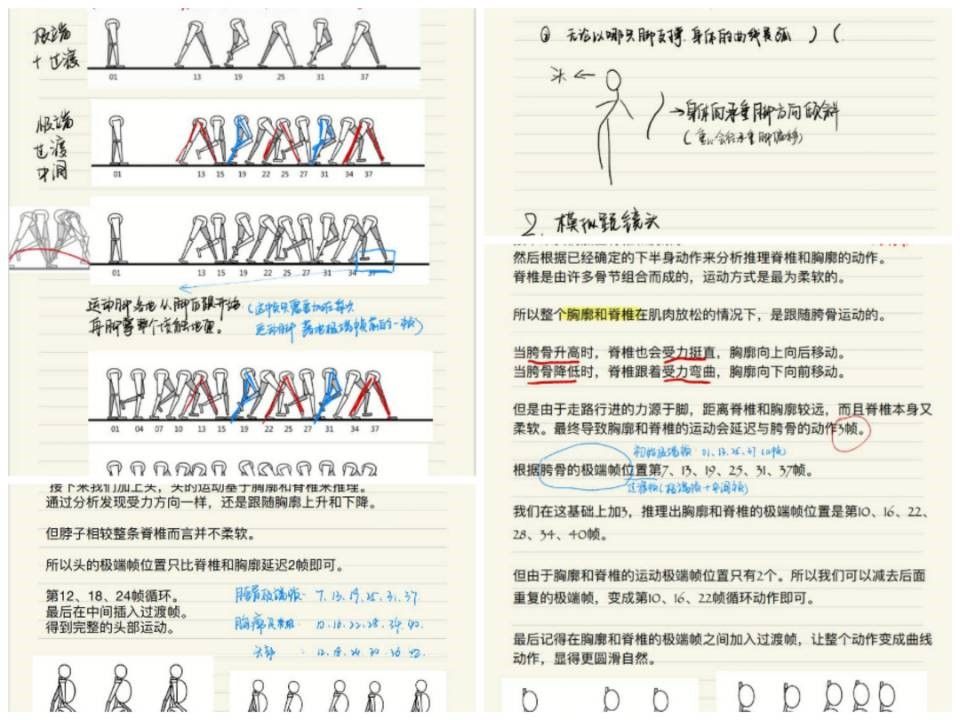 极端
+过渡
01 13 19 25 31 37
极端
过渡
中间
01 13 15 19 22 25 27 31 34 37
01 13 15 19 22 25 27 31 34 37
运动脚落地从脚后跟开始
01 04 07 10 13 15 19 22 25 28 31 34 37
接下来我们加上头，头的运动基于胸廓和脊椎来推理。
通过分析发现受力方向一样，还是跟随胸廓上升和下降。
但脖子相较整条脊椎而言并不柔软。
所以头的极端帧位置只比脊椎和胸廓延迟2帧即可。
第12、18、24帧循环。
最后在中间插入过渡帧。
得到完整的头部运动。
胯骨极端帧: 7.13.19.25.31.37
头部
① 无论以哪只脚支撑 身体的曲线
头 ←
→身体向承重脚方向倾斜
2. 模拟跟镜头
然后根据已经确定的下半身动作来分析推理脊椎和胸廓的动作。
脊椎是由许多骨节组合而成的，运动方式是最为柔软的。
所以整个胸廓和脊椎在肌肉放松的情况下，是跟随胯骨运动的。
当胯骨升高时，脊椎也会受力挺直，胸廓向上向后移动。
当胯骨降低时，脊椎跟着受力弯曲，胸廓向下向前移动。
但是由于走路行进的力源于脚，距离脊椎和胸廓较远，而且脊椎本身又
柔软。最终导致胸廓和脊椎的运动会延迟与胯骨的动作3帧。
根据胯骨的极端帧位置第7、13、19、25、31、37帧。
过渡帧(极端帧+中间帧)
我们在这基础上加3，推理出胸廓和脊椎的极端帧位置是第10、16、22、
28、34、40帧。
但由于胸廓和脊椎的运动极端帧位置只有2个。所以我们可以减去后面
重复的极端帧，变成第10、16、22帧循环动作即可。
最后记得在胸廓和脊椎的极端帧之间加入过渡帧，让整个动作变成曲线
动作，显得更圆滑自然。